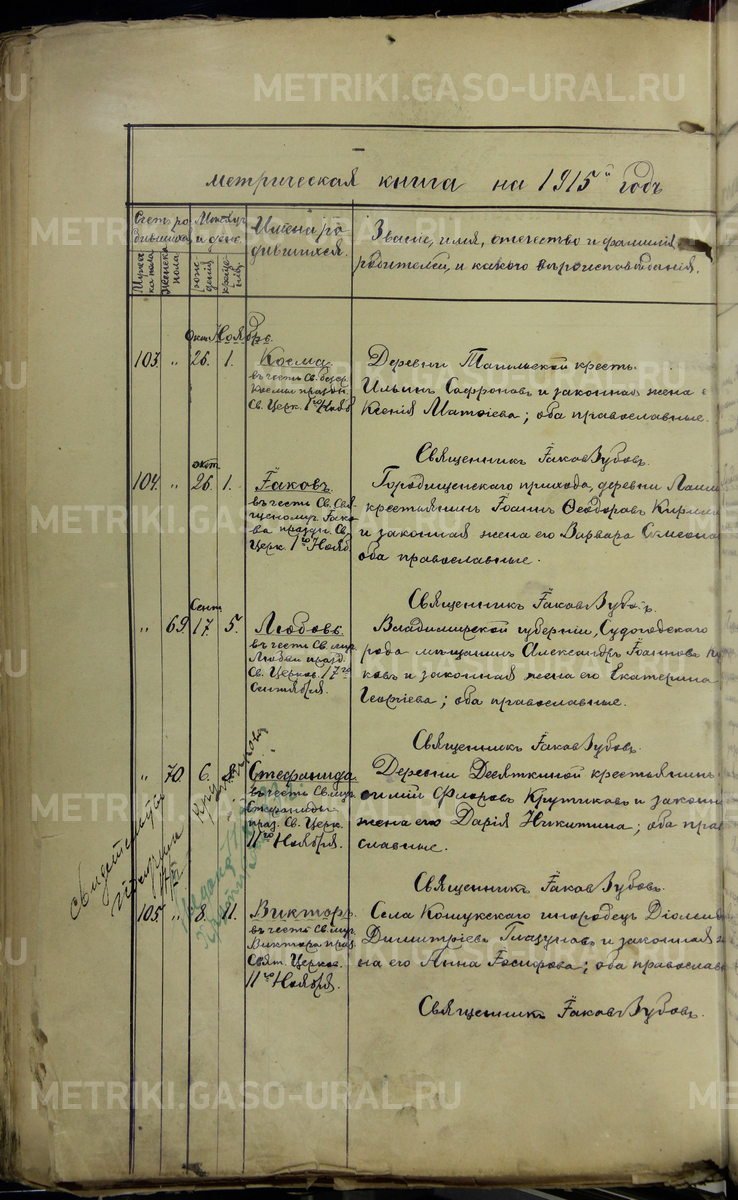 METRIKI.GASO-URAL.RU
метрическая книга на 1915й годъ
Счетъ ро-
дившихся
Мужеска пола
Женска пола
Месяцъ
и день
рождения
крещения
Имена ро-
дившихся.
Званіе, имя, отечество и фамилія
родителей, и какого вѣроисповѣданія.
Окт. Ноябрь.
103. " 26. 1. Косма
въ честь Св. безср.
Космы праздн.
Св. Церк. 1го Нояб
Деревни Тагильской крест.
Ильинъ Сафроновъ и законная жена
Ксенія Матѳіева; оба православные.
Священникъ Іаковъ Зубовъ.
окт.
104. " 26. 1. Іаковъ
въ честь Св. Свя-
щеномуч. Іако-
ва праздн. Св.
Церк. 1го Нояб
Городищенскаго прихода, деревни
крестьянинъ Іоаннъ Ѳеодоровъ
и законная жена его Варвара Симеона
оба православные.
Священникъ Іаковъ Зубовъ.
Сент.
" 69. 17. 5. Любовь
въ честь Св. муч.
Любви празд.
Св. Церков. 17го
Сентября.
Владимирской губерніи, Судогодскаго
рода мѣщанинъ Александръ Іоанновъ
ковъ и законная жена его Екатерина
Георгіева; оба православные.
Священникъ Іаковъ Зубовъ.
" 70 6. 8. Стефанида
въ честь Св. муч.
Стефаниды
праз. Св. Церк.
11го Ноября.
Деревни Десяткиной крестьянинъ
Флоровъ Крутиковъ и законн
жена его Дарія Никитина; оба пра
славные.
Священникъ Іаковъ Зубовъ.
105. " 8. 11. Викторъ
въ честь Св. муч.
Виктора праз.
Свят. Церков.
11го Ноября.
Села Кошукскаго инородецъ
Димитріевъ Глазуновъ и законная
на его Анна Іосифова; оба православ
Священникъ Іаковъ Зубовъ.
METRIKI.GASO-URAL.RU